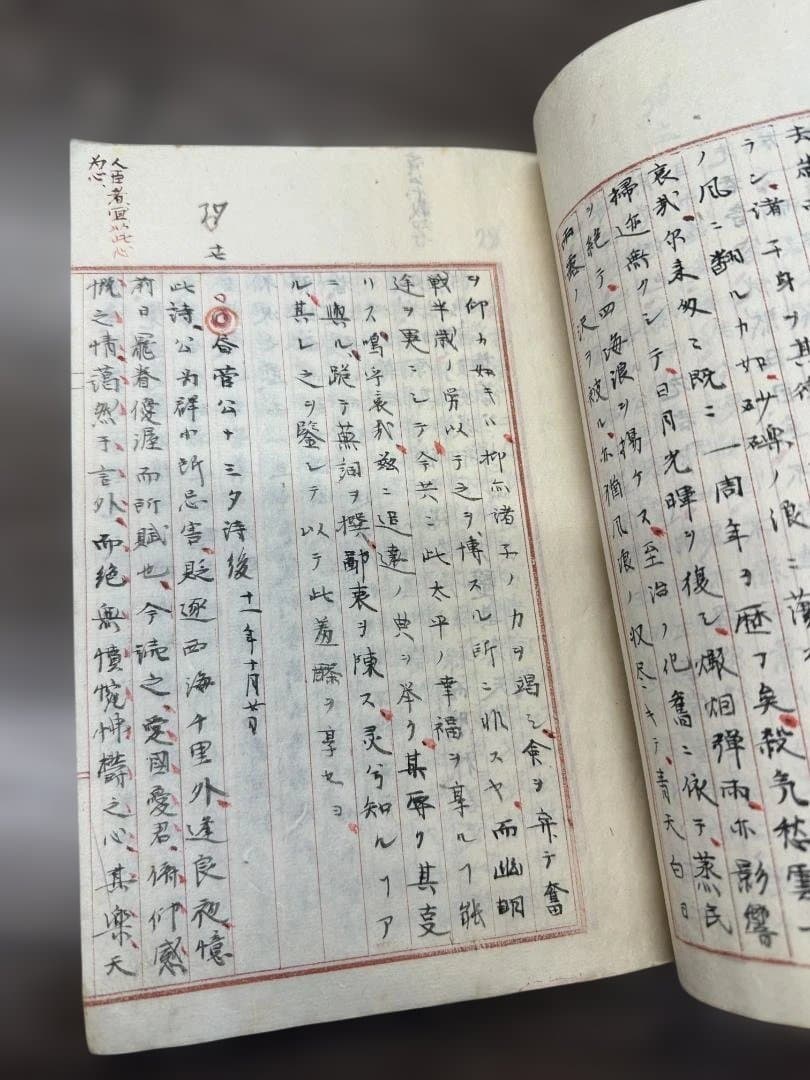 ラン、諸子身ヲ其
ノ風ニ翻ルカ如ク砂礫ノ浪ニ
哀哉、尔来忽々既ニ一周年ヲ歴了矣、殺気愁雲
掃迹無クシテ、日月光暉ヲ復シ、爆烟弾雨亦影響
ヲ絶テ、四海浪ヲ揚ケス、至治ノ化旧ニ依テ、蒸民
雨露ノ沢ヲ被ル、亦猶風浪ノ収尽シテ、青天白日
ヲ仰カ如キハ、抑亦諸子ノ力ヲ竭シ、命ヲ弃テ奮
戦半歳ノ労以テ之ヲ博スル所ニ非スヤ、而幽明
途ヲ異ニシテ今共ニ此太平ノ幸福ヲ享ルヿ能
ハス、嗚呼哀哉、茲ニ追遠ノ典ヲ挙ク、某辱ク其
ニ与ル、謹テ蕪詞ヲ撰、鄙衷ヲ陳ス、灵兮知ルヿア
ル、其レ之ヲ鑒シテ以テ此羞醪ヲ享セヨ
書菅公十三夕詩後 十一年十月廿日
此詩、公為群小所忌害、貶逐西海千里外、逢良夜、憶
前日寵眷優渥而所賦也、今読之、愛國愛君、俯仰感
慨之情、藹然于言外、而絶無憤惋怫欝之心、其楽天
人臣者宜以此心
为心、